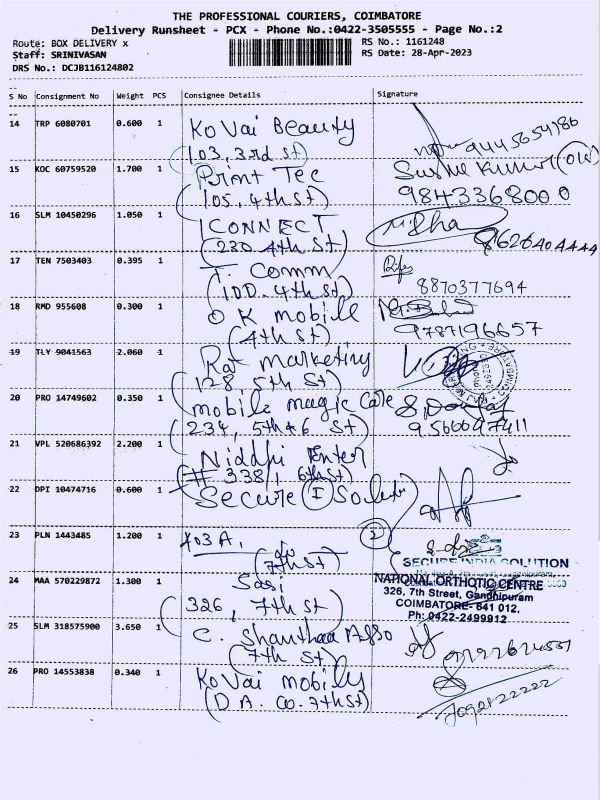 THE PROFESSIONAL COURIERS, COIMBATORE
Delivery Runsheet - PCX - Phone No.:0422-3505555 - Page No.:2
Route: BOX DELIVERY x
RS No.: 1161248
Staff: SRINIVASAN
RS Date: 28-Apr-2023
DRS No.: DCJB116124802
S No Consignment No Weight PCS Consignee Details Signature
14 TRP 6080701 0.600 1 Kovai Beauty
(103, 3rd st) 9445654986
15 KOC 60759520 1.700 1 Print Tec
(105, 4th st) 9843368000
16 SLM 10450296 1.050 1 ICONNECT
(230 4th St)
17 TEN 7503403 0.395 1 T. Comm
(100. 4th st) 8870377694
18 RMD 955608 0.300 1 O K mobile
(4th St) 9787196657
19 TLY 9041563 2.060 1 Raj marketing
(128, 5th St)
20 PRO 14749602 0.350 1 mobile magic care
(234, 5th & 6 St)
21 VPL 520686392 2.200 1 Niddhi Enter
(# 338/1 6th St)
22 DPI 10474716 0.600 1 Secure I Soluti
23 PLN 1443485 1.200 1 403 A, 2
(7th St)
SECURE INDIA SOLUTION
24 MAA 570229872 1.300 1 Sasi
(326, 7th st)
NATIONAL ORTHOTIC CENTRE
326, 7th Street, Gandhipuram
COIMBATORE- 641 012.
Ph: 0422-2499912
25 SLM 318575900 3.650 1 C. Shanthaa Asso
(7th St)
26 PRO 14553838 0.340 1 Kovai mobily
(D.A. Co. 7th St)